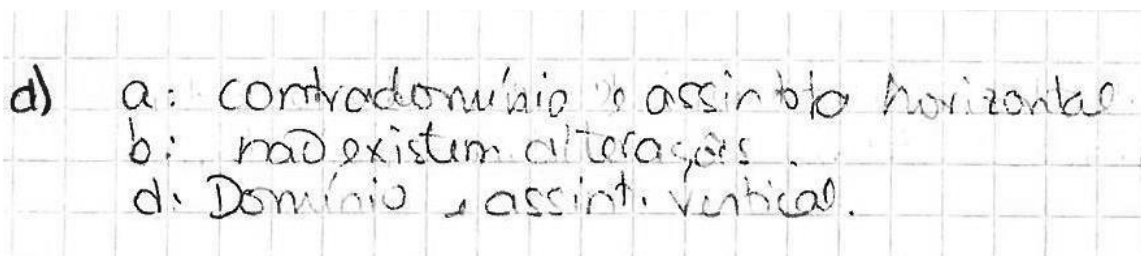 d) a: contradomínio e assintota horizontal.
b: não existem alterações.
d: Domínio e assint. vertical.